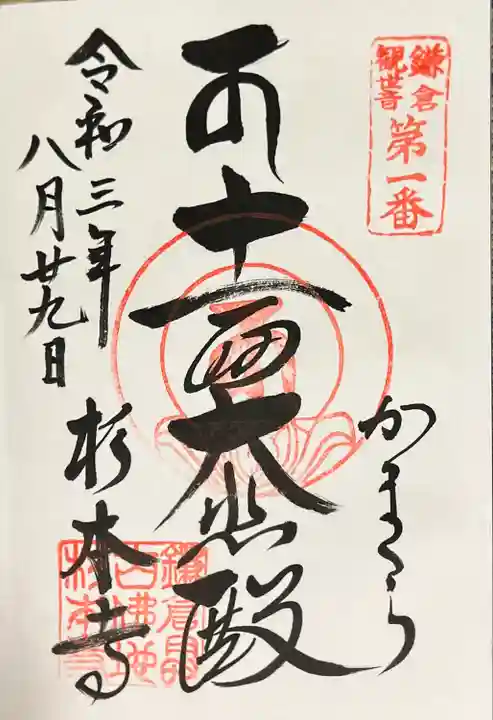 鎌倉
観世音
第一番
かまくら
十一面大悲殿
令和三年
八月廿九日
杉本寺
鎌倉最
古佛地
杉本寺